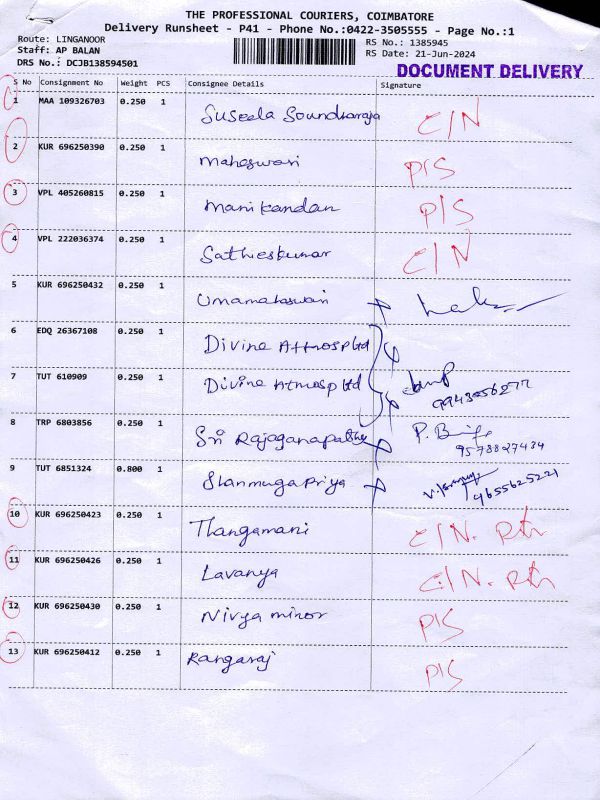 THE PROFESSIONAL COURIERS, COIMBATORE
Delivery Runsheet - P41 - Phone No.:0422-3505555 - Page No.:1
Route: LINGANOOR
RS No.: 1385945
Staff: AP BALAN
RS Date: 21-Jun-2024
DRS No.: DCJB138594501
DOCUMENT DELIVERY
S No Consignment No Weight PCS Consignee Details Signature
1 MAA 109326703 0.250 1 Suseela Soundharaja C/N
2 KUR 696250390 0.250 1 Maheswari P/S
3 VPL 405260815 0.250 1 Manikandan P/S
4 VPL 222036374 0.250 1 Sathieskumar C/N
5 KUR 696250432 0.250 1 Umamaheswari
6 EDQ 26367108 0.250 1 Divine Attmosp ltd
7 TUT 610909 0.250 1 Divine Atmosp ltd
8 TRP 6803856 0.250 1 Sri Rajaganapathy
9578827434
9 TUT 6851324 0.800 1 Shanmuga Priya
10 KUR 696250423 0.250 1 Thangamani C/N. Rtn
11 KUR 696250426 0.250 1 Lavanya C/N. Rtn
12 KUR 696250430 0.250 1 Nivya minor P/S
13 KUR 696250412 0.250 1 Rangaraj P/S